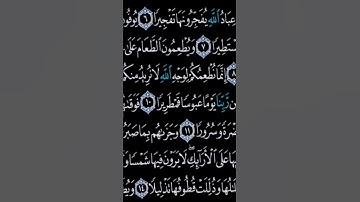 عِبَادُ ٱللَّهِ يُفَجِّرُونَهَا تَفْجِيرًا ٦ يُوفُونَ
سْتَطِيرًا ٧ وَيُطْعِمُونَ ٱلطَّعَامَ عَلَىٰ
٨ إِنَّمَا نُطْعِمُكُمْ لِوَجْهِ ٱللَّهِ لَا نُرِيدُ مِنكُ
ن رَّبِّنَا يَوْمًا عَبُوسًا قَمْطَرِيرًا ١٠ فَوَقَىٰهُ
ضْرَةً وَسُرُورًا ١١ وَجَزَىٰهُم بِمَا صَبَرُ
يهَا عَلَى ٱلْأَرَآئِكِ ۖ لَا يَرَوْنَ فِيهَا شَمْسًا وَ
لَٰلُهَا وَذُلِّلَتْ قُطُوفُهَا تَذْلِيلًا ١٤ وَيُطَ